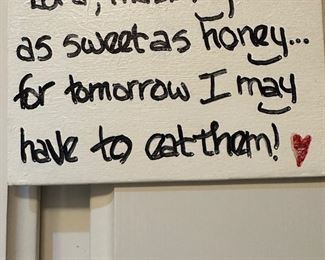 Lord,
as sweet as honey...
for tomorrow I may
have to eat them!